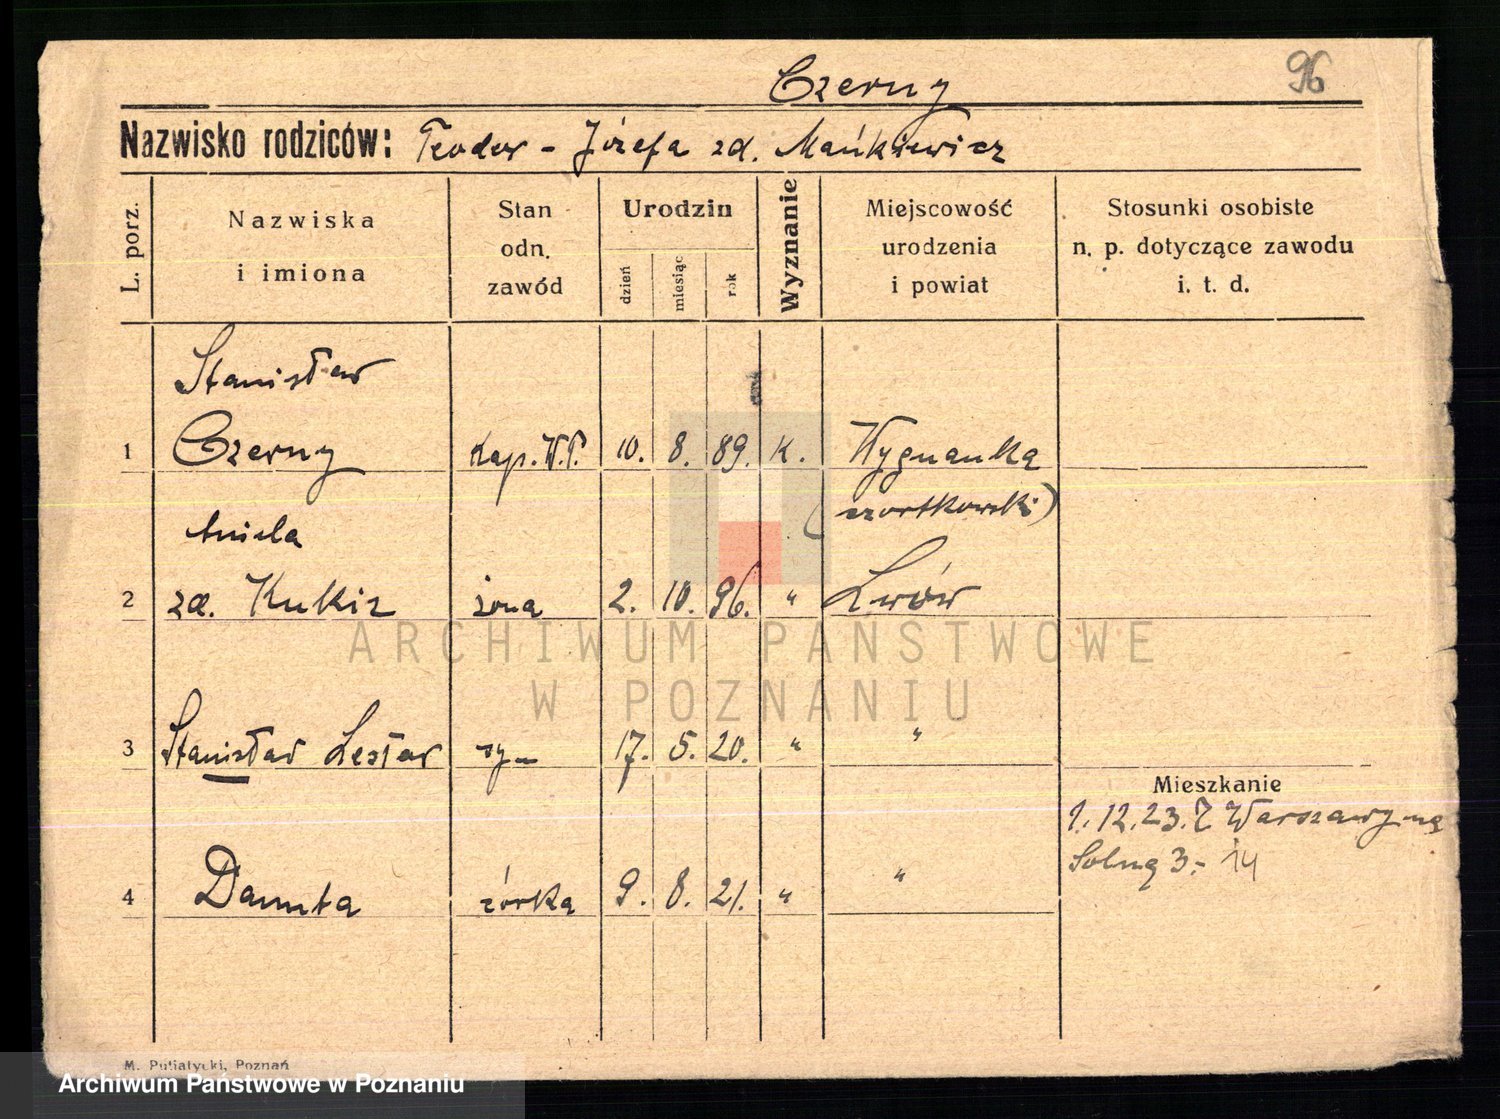 Czerny
96
Nazwisko rodziców: Teodor - Józefa zd. Mańkiewicz
L. porz.
Nazwiska
i imiona
Stan
odn.
zawód
Urodzin
dzień
miesiąc
rok
Wyznanie
Miejscowość
urodzenia
i powiat
Stosunki osobiste
n. p. dotyczące zawodu
i. t. d.
Stanisław
1 Czerny Kap. W.P. 10. 8. 89. K. Wygnanka
(czortkowski)
Aniela
2 zd. Kukiz żona 2. 10. 96. " Lwów
3 Stanisław Lesław syn 17. 5. 20. " "
Mieszkanie
1.12.23. Z Warszawy na
Solną 3.- 14
4 Danuta córka 9. 8. 21. " "
M. Putiatycki, Poznań
ARCHIWUM PAŃSTWOWE
W POZNANIU
Archiwum Państwowe w Poznaniu